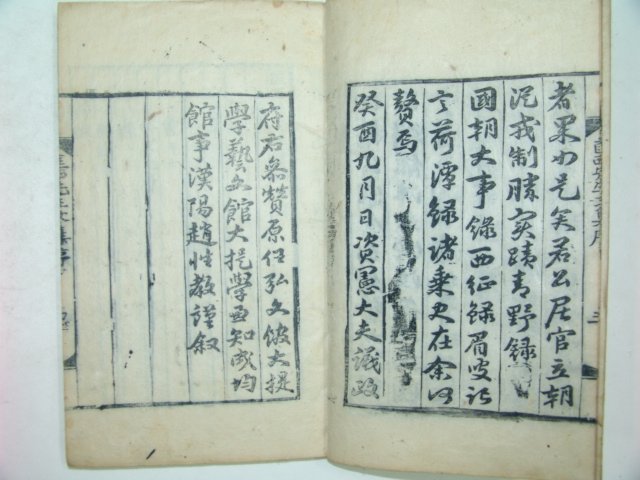 者果如是矣若公居官立朝
泥我制勝實蹟青野錄
國朝大事錄西征錄眉叟訪
言荷潭錄諸乘史在余何
贅焉
癸酉九月日資憲大夫議政
府右參贊原任弘文館大提
學藝文館大提學兼知成均
館事漢陽趙性敎謹叙